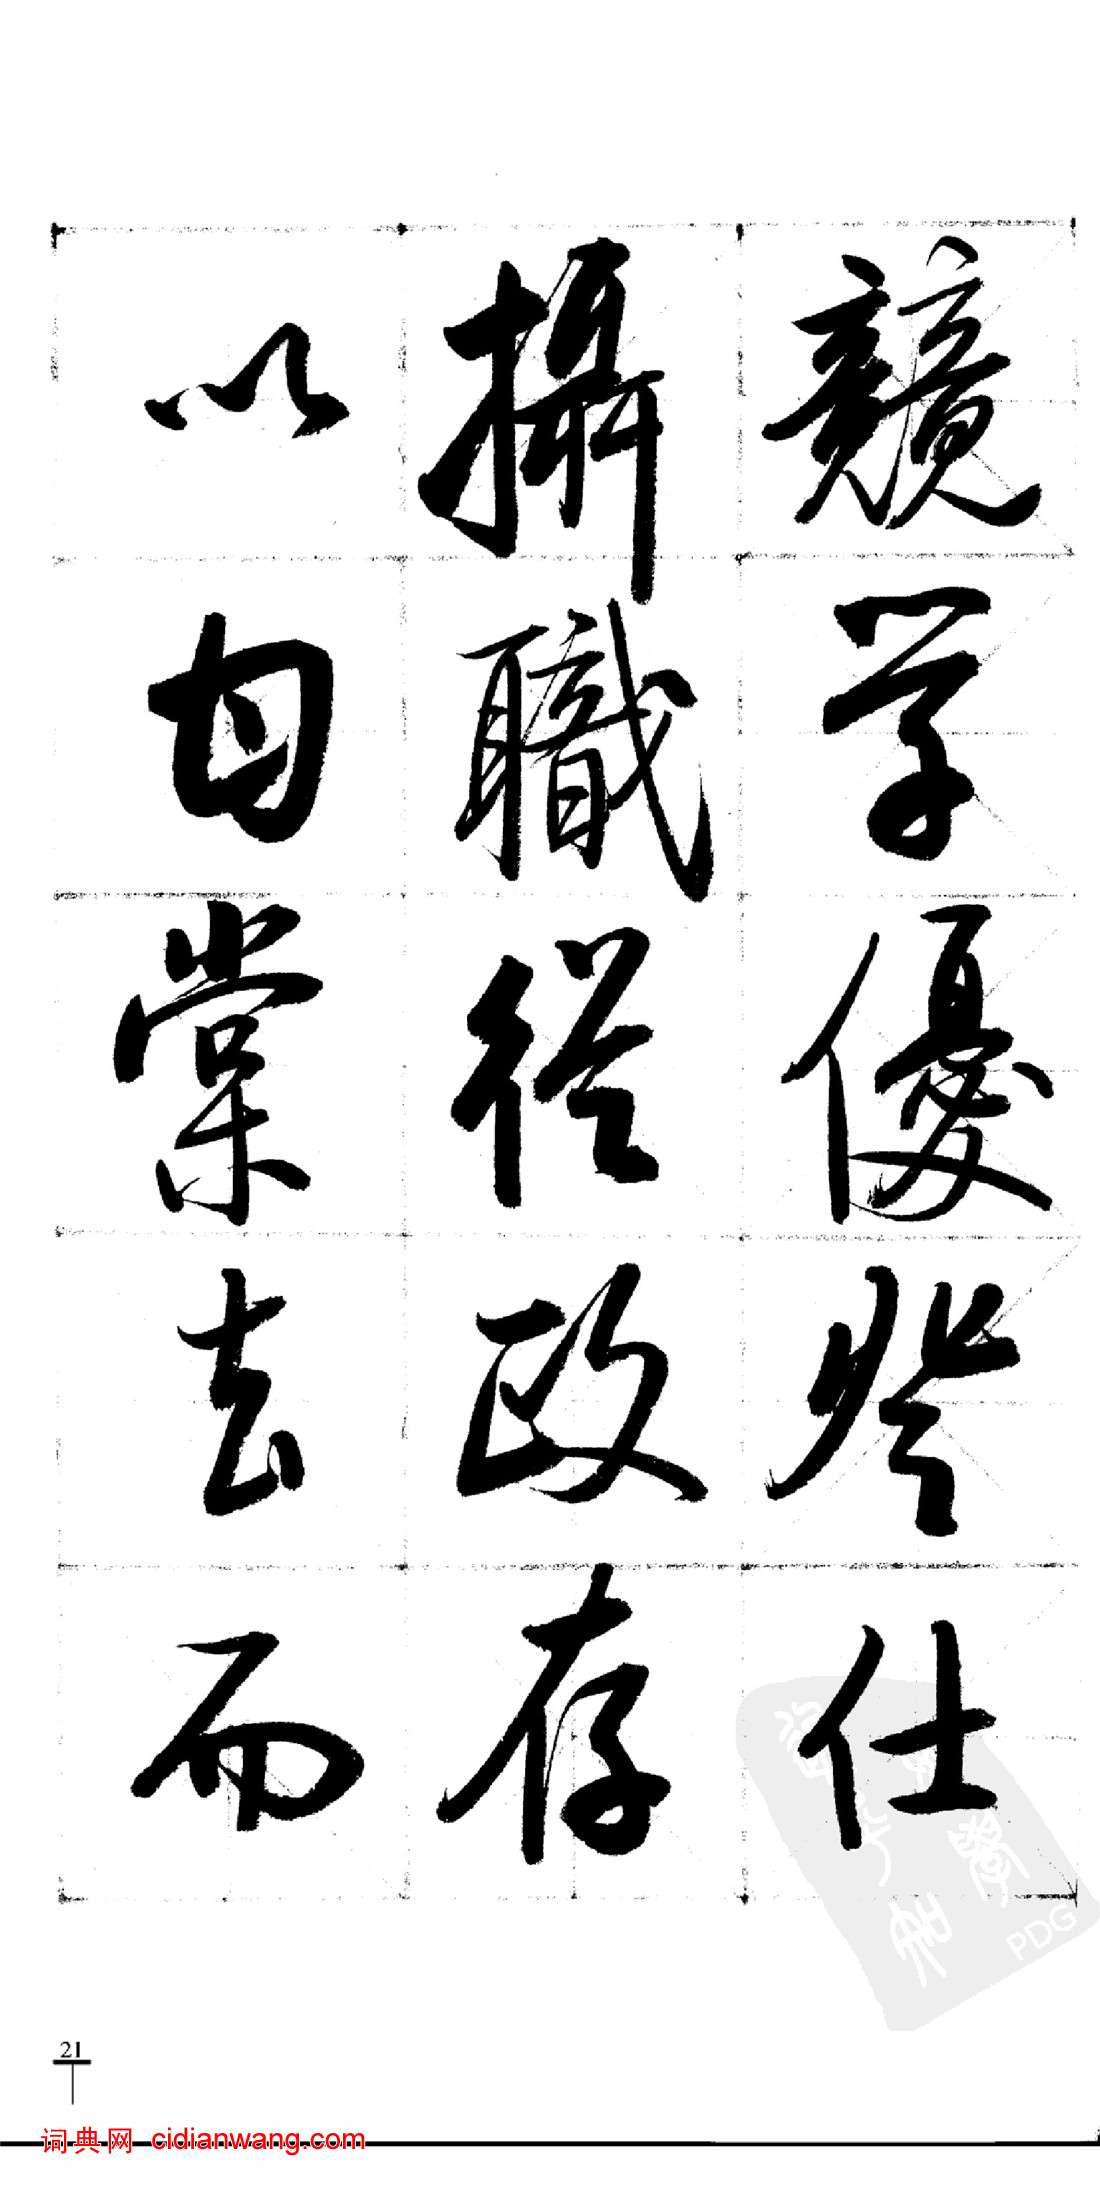 竸学優登仕
攝職從政存
以甘棠去而
PDG
21
词典网 cidianwang.com